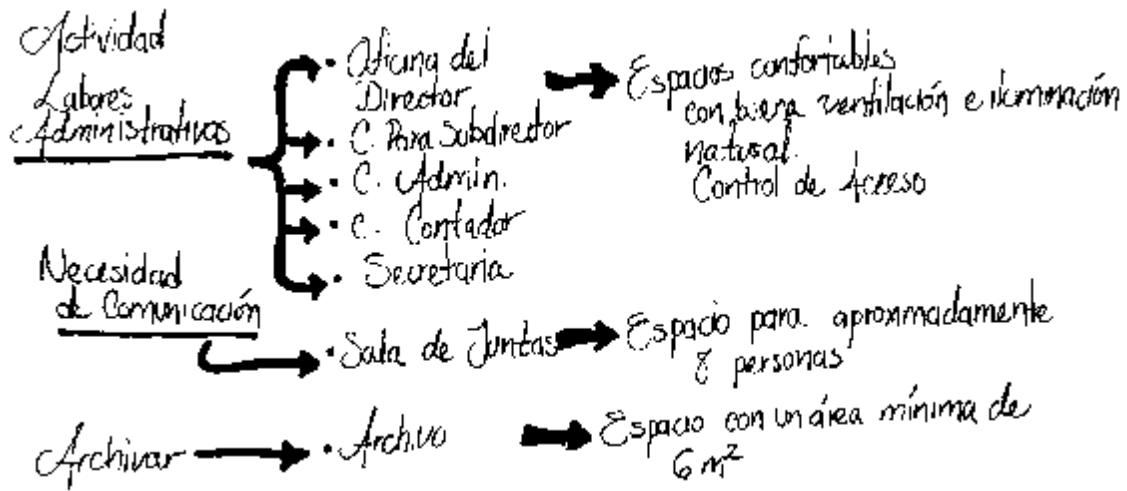 Actividad
Labores
Administrativas
• Oficina del
Director
• C. Para Subdirector
• C. Admin.
• C. Contador
• Secretaria
Espacios confortables
con buena ventilación e iluminación
natural.
Control de Acceso
Necesidad
de Comunicación
• Sala de Juntas
Espacio para aproximadamente
8 personas
Archivar
• Archivo
Espacio con un área mínima de
6 m²